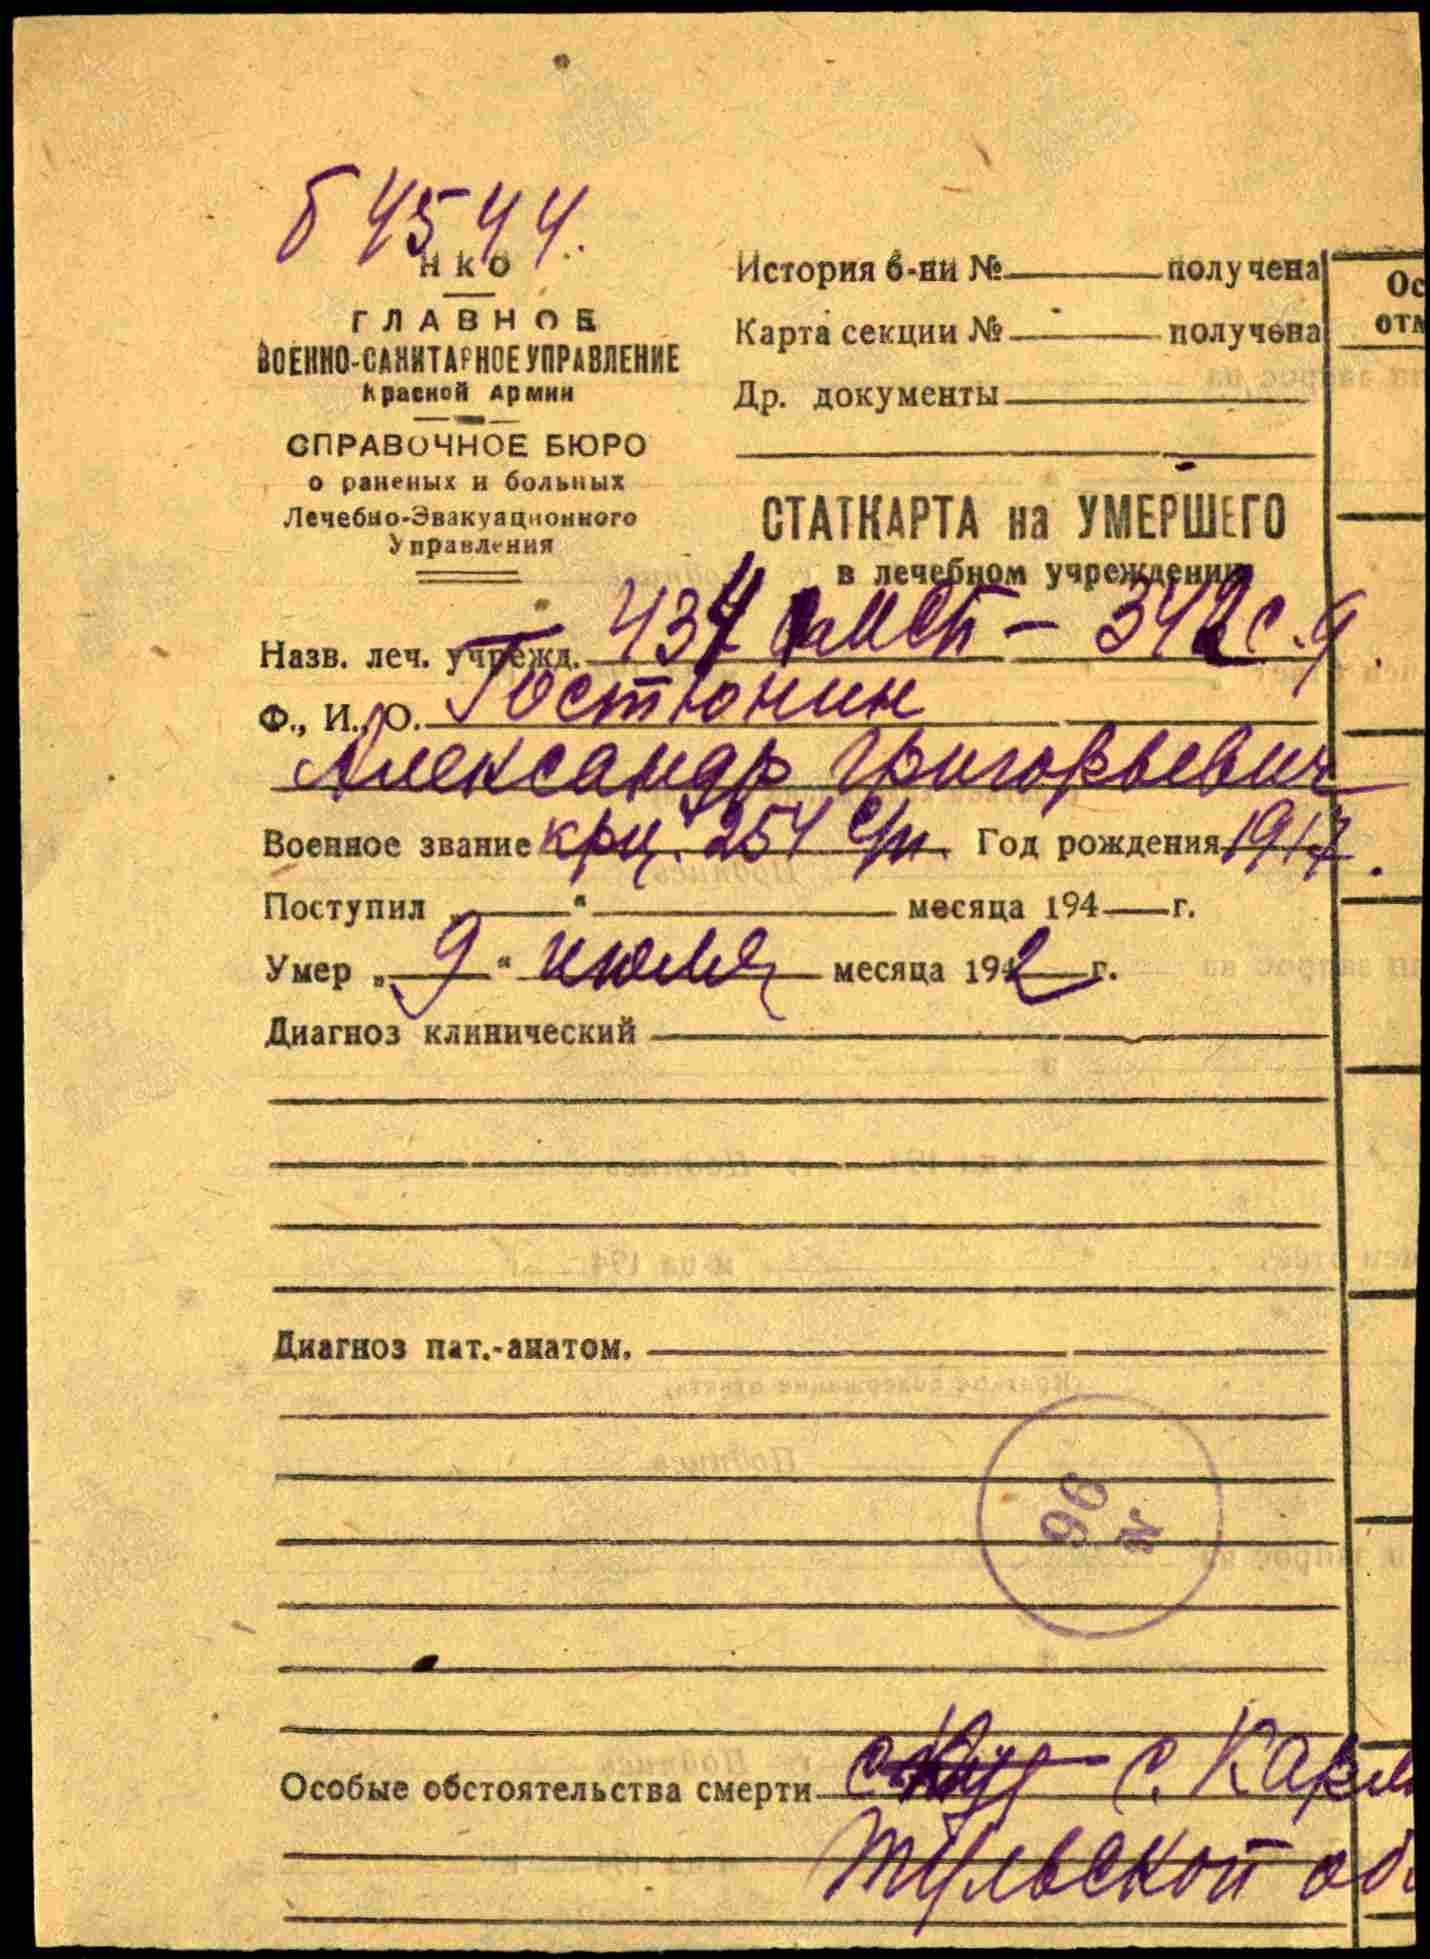 б 4544.
НКО
ГЛАВНОЕ
ВОЕННО-САНИТАРНОЕ УПРАВЛЕНИЕ
Красной Армии
СПРАВОЧНОЕ БЮРО
о раненых и больных
Лечебно-Эвакуационного
Управления
История б-ни № получена
Карта секции № получена
Др. документы
Ос
отм
СТАТКАРТА на УМЕРШЕГО
в лечебном учреждении
Назв. леч. учрежд. 434 омсб - 342 с.д
Ф., И., О. Гостюнин
Александр Григорьевич
Военное звание крц. 254 с/п. Год рождения 1917.
Поступил „ “ месяца 194 г.
Умер „ 9 “ июля месяца 1942 г.
Диагноз клинический
Диагноз пат.-анатом.
96
N
Особые обстоятельства смерти с. Карм
Тульской об